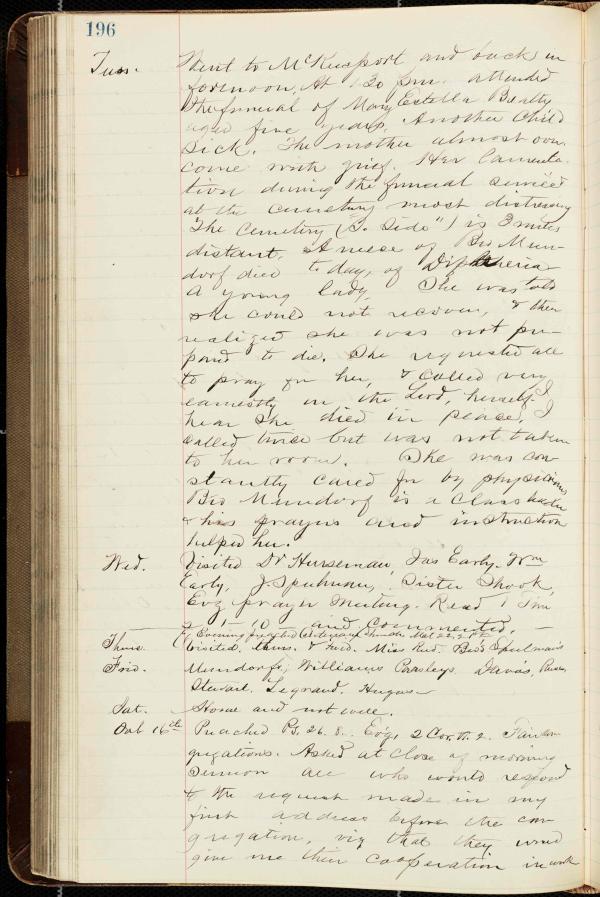 196
Tues. Went to McKeesport and back in
forenoon. At 1.30 p.m. attended
the funeral of Mary Estella Beatty
aged five years. Another child
sick. The mother almost over
come with grief. Her lamenta-
tion during the funeral services
at the cemetery most distressing
The Cemetery ("S. Side") is 3 miles
distant. A niece of Bro Mun-
dorf died to day, of Diphtheria
a young lady. She was told
she could not recover, & then
realized she was not pre-
pared to die. She requested all
to pray for her, & called very
earnestly on the Lord, herself. I
hear she died in peace. I
called twice but was not taken
to her room. She was con-
stantly cared for by physicians
Bro Mundorf is a Class leader
& his prayers and instruction
helped her.
Wed. Visited Dr Hurseman, Jas Early. Wm
Early, J. Spulman, Sister Shook,
Evg prayer Meeting. Read 1 Tim
2, 1-10 and Commented.
Evening preached
Thurs. Visited. Thurs. & Frid. Miss Bros Spulman's
Frid. Mundorfs, Williams Parsleys
Stewart. Legrand. Hugus
Sat. Home and not well.
Oct 16th Preached Ps. 26. 8. Evg, 2 Cor. 2. Fair con
gregations. Asked at close of morning
sermon all who would respond
to the request made in my
first address before the con
gregation, viz that they would
give me their cooperation in work